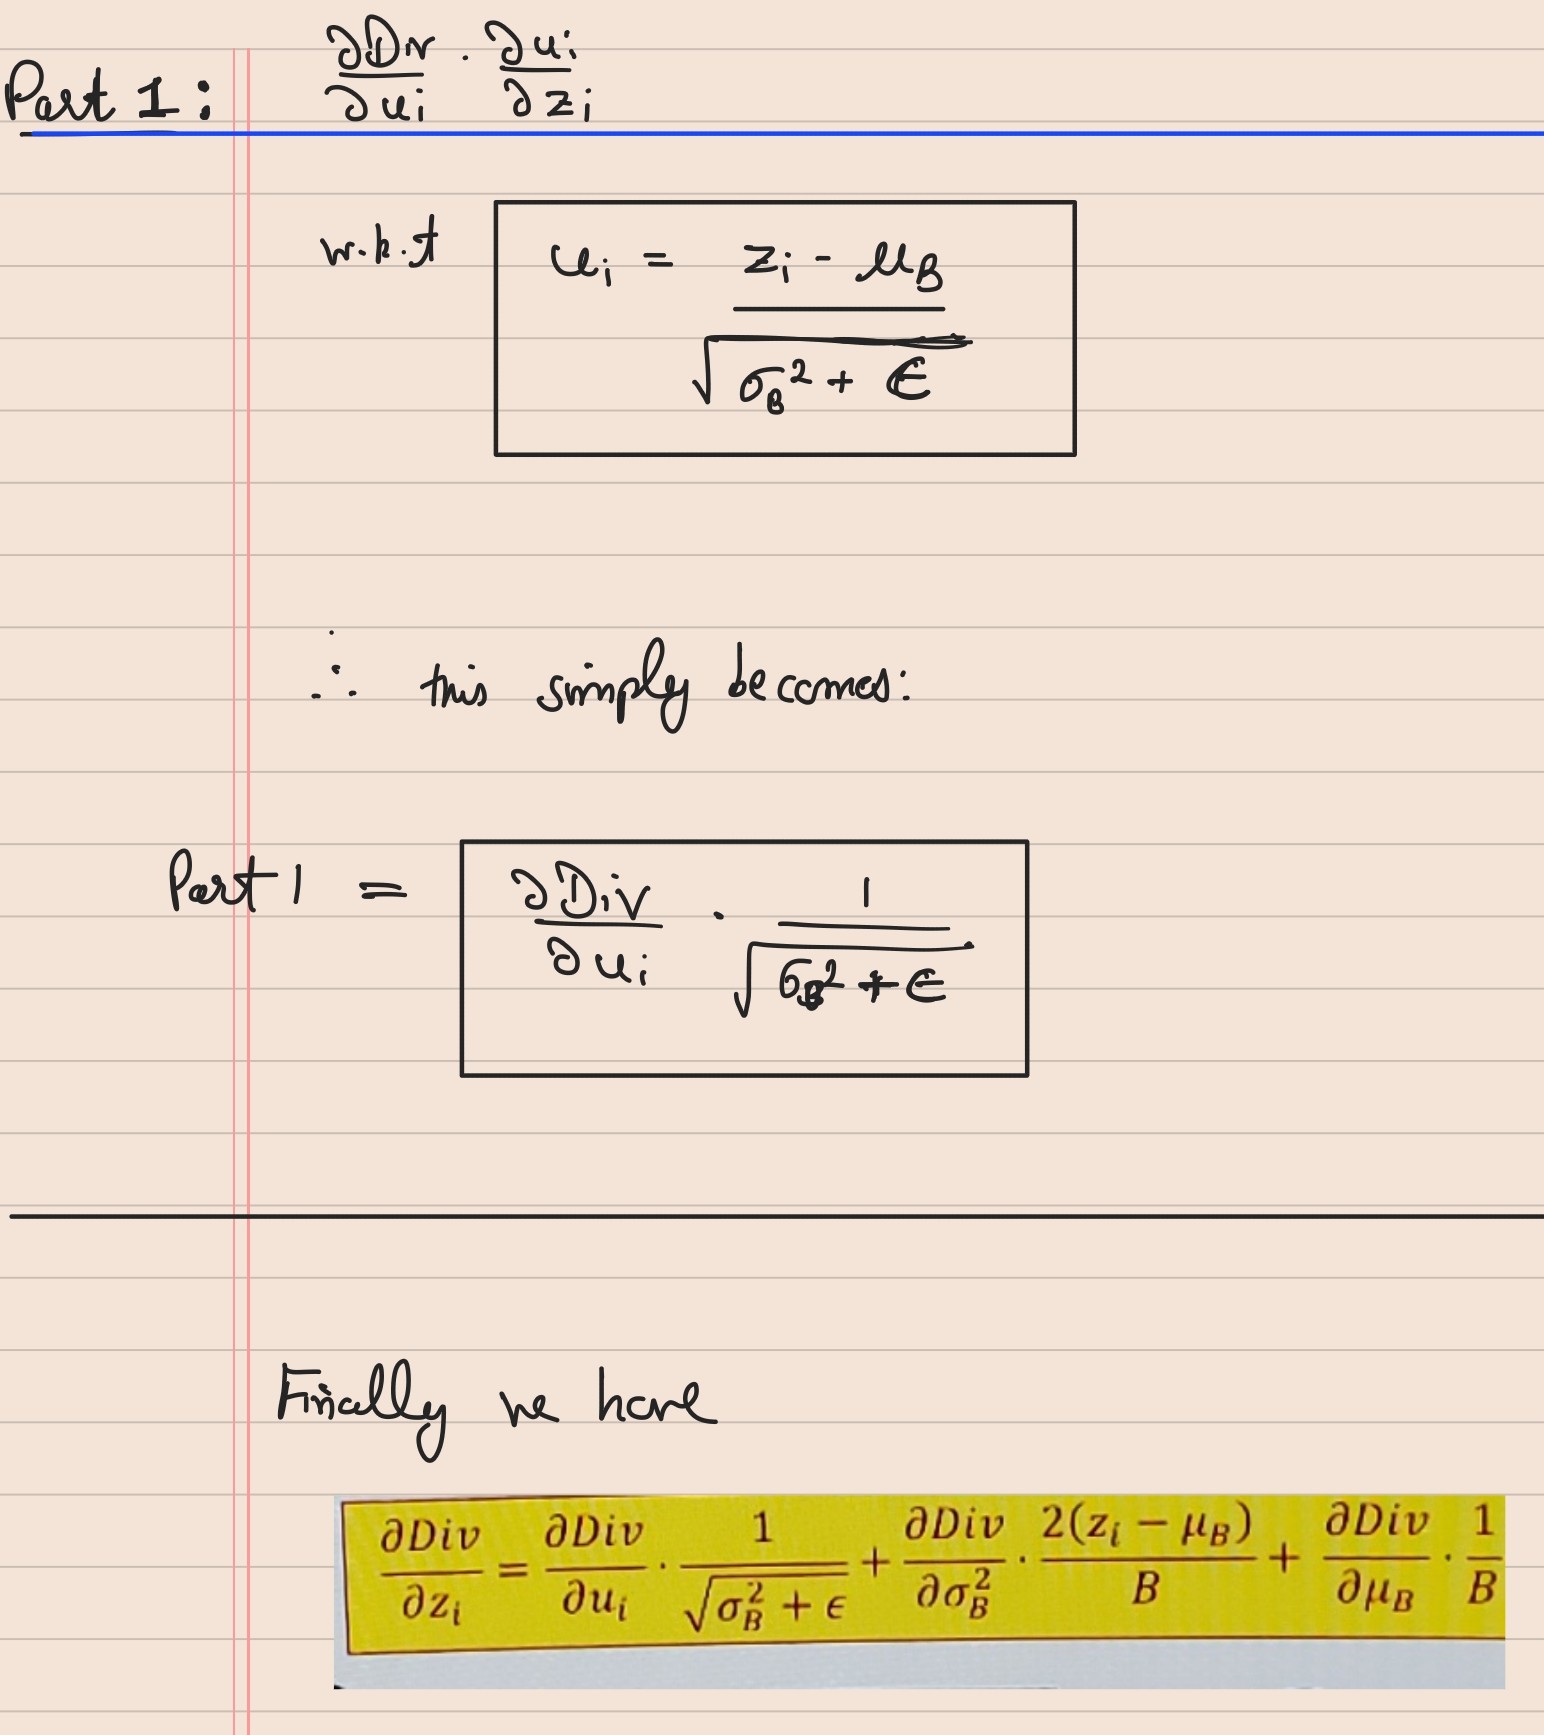 Part 1: ∂Div/∂ui · ∂ui/∂zi
w.k.t ui = (zi - μB) / √(σB² + ϵ)
∴ this simply becomes:
Part 1 = ∂Div/∂ui · 1/√(σB² + ϵ)
Finally we have
∂Div/∂zi = ∂Div/∂ui · 1/√(σB² + ϵ) + ∂Div/∂σB² · 2(zi − μB)/B + ∂Div/∂μB · 1/B